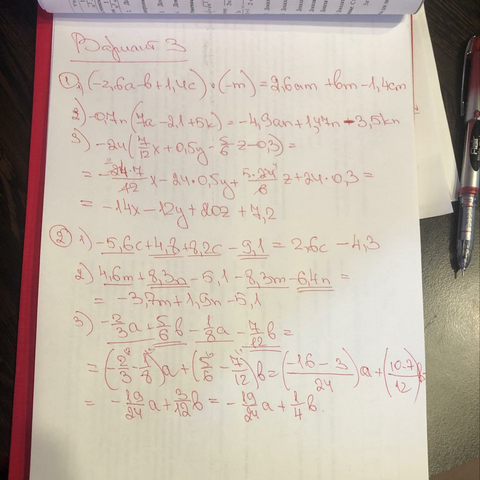 Вариант 3
① 1) (-2,6a-b+1,4c)•(-m)=2,6am+bm-1,4cm
2) -0,7n(7a-2,1+5k)=-4,9an+1,47n-3,5kn
3) -24(7/12x+0,5y-5/6z-0,3)=
=-24·7/12x-24·0,5y+5·24/6z+24·0,3=
=-14x-12y+20z+7,2
② 1) -5,6c+4,8+8,2c-9,1=2,6c-4,3
2) 4,6m+8,3n-5,1-8,3m-6,4n=
=-3,7m+1,9n-5,1
3) -2/3a+5/6b-1/8a-7/12b=
=(-2/3-1/8)a+(5/6-7/12)b=(-16-3/24)a+(10-7/12)b
=-19/24a+3/12b=-19/24a+1/4b.